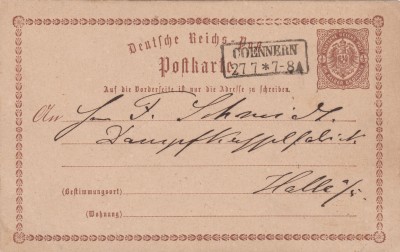 Deutsche Reichs-Post
COENNERN
27 7 * 7-8A
Postkarte
Auf die Vorderseite ist nur die Adresse zu schreiben.
An Herrn F. Schmidt.
Dampfkesselfabrik
(Bestimmungsort) Halle a/S.
(Wohnung)